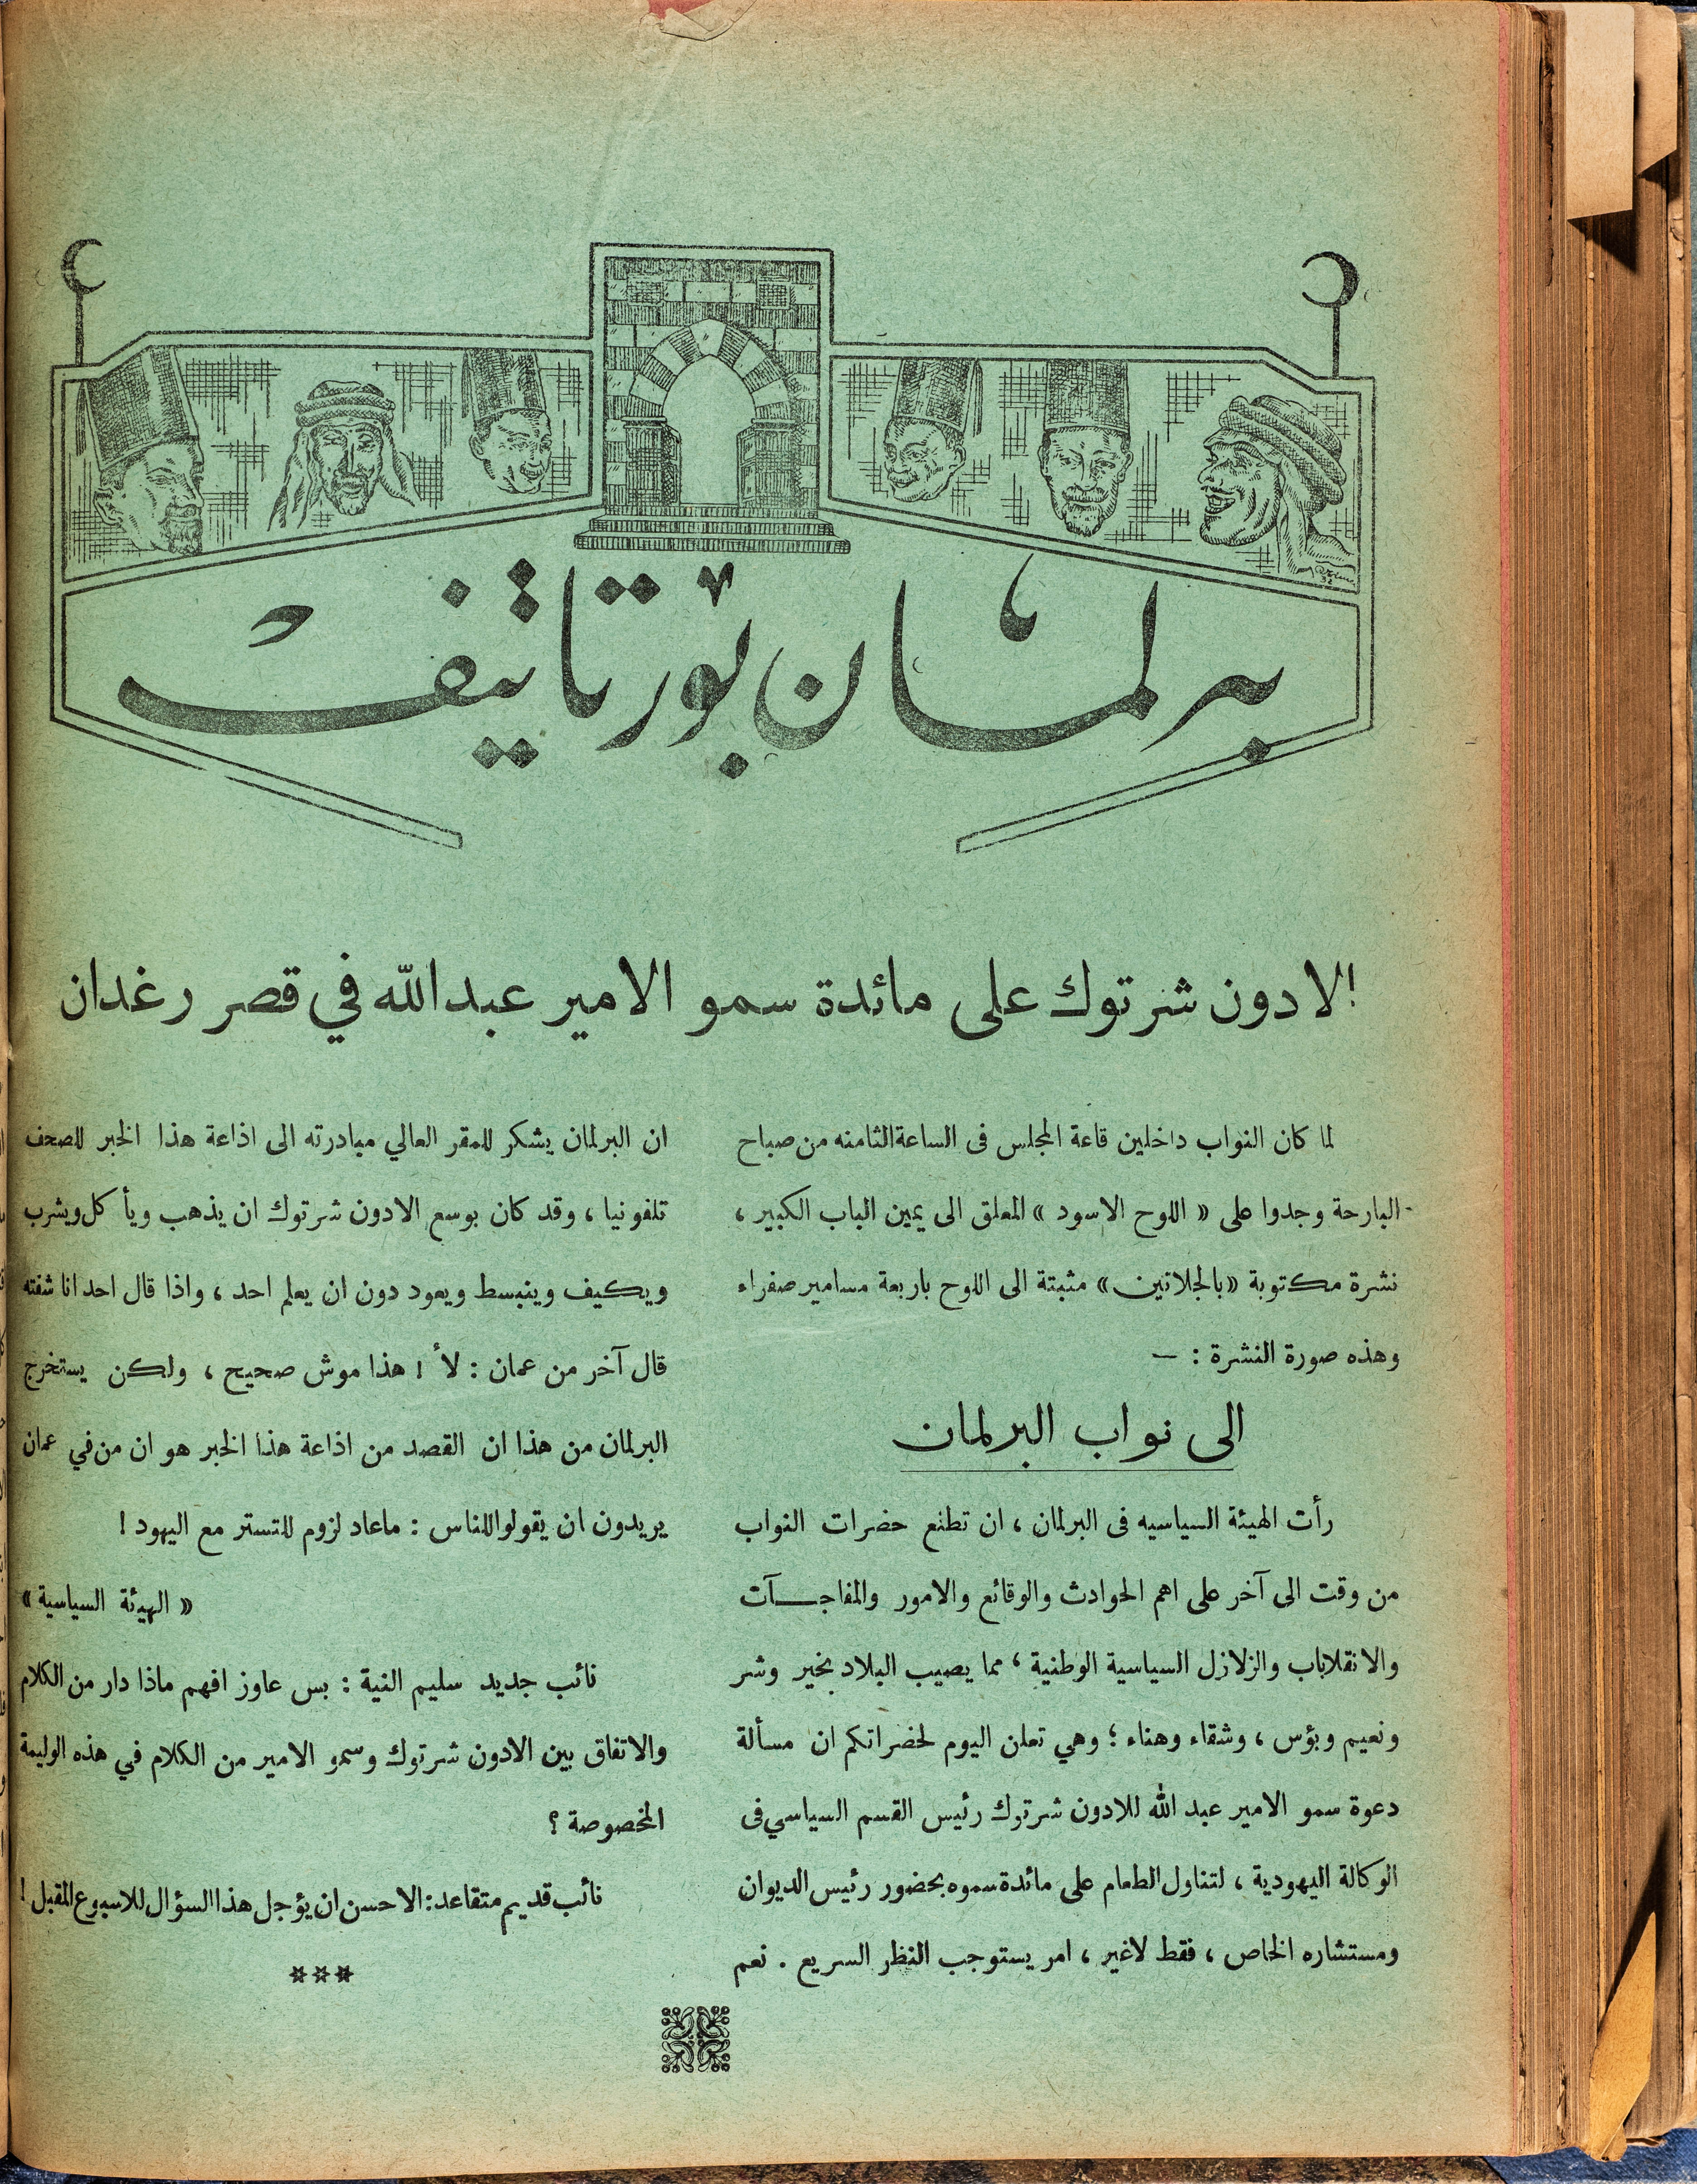 برلمان بورتاتيف
الادون شرتوك على مائدة سمو الامير عبدالله في قصر رغدان
لما كان النواب داخلين قاعة المجلس فى الساعة الثامنه من صباح
البارحة وجدوا على « اللوح الاسود » المعلق الى يمين الباب الكبير ،
نشرة مكتوبة «بالجلاتين» مثبتة الى اللوح باربعة مسامير صفراء
وهذه صورة النشرة : —
الى نواب البرلمان
رأت الهيئة السياسيه فى البرلمان ، ان تطلع حضرات النواب
من وقت الى آخر على اهم الحوادث والوقائع والامور والمفاجــآت
والانقلابات والزلازل السياسية الوطنية ، مما يصيب البلاد بخير وشر
ونعيم وبؤس ، وشقاء وهناء ؛ وهي تعلن اليوم لحضراتكم ان مسألة
دعوة سمو الامير عبد الله للادون شرتوك رئيس القسم السياسي فى
الوكالة اليهودية ، لتناول الطعام على مائدة سموه بحضور رئيس الديوان
ومستشاره الخاص ، فقط لاغير ، امر يستوجب النظر السريع . نعم
ان البرلمان يشكر للمقر العالي مبادرته الى اذاعة هذا الخبر للصحف
تلفونيا ، وقد كان بوسع الادون شرتوك ان يذهب ويأكل ويشرب
ويكيف وينبسط ويعود دون ان يعلم احد ، واذا قال احد انا شفته
قال آخر من عمان : لأ ! هذا موش صحيح ، ولكن يستخرج
البرلمان من هذا ان القصد من اذاعة هذا الخبر هو ان من في عمان
يريدون ان يقولوا للناس : ماعاد لزوم للتستر مع اليهود !
« الهيئة السياسية »
نائب جديد سليم النية : بس عاوز افهم ماذا دار من الكلام
والاتفاق بين الادون شرتوك وسمو الامير من الكلام في هذه الوليمة
المخصوصة ؟
نائب قديم متقاعد : الاحسن ان يؤجل هذا السؤال للاسبوع المقبل !
***